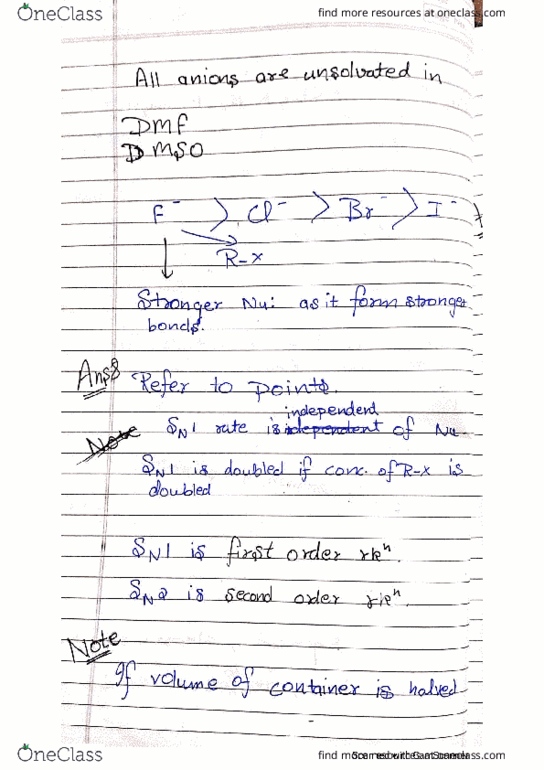 OneClass
find more resources at oneclass.com
All anions are unsolvated in
DMF
DMSO
F⁻ > Cl⁻ > Br⁻ > I⁻
R-X
Stronger Nu: as it form stronger
bonds.
Ans8 Refer to points.
independent
Note SN1 rate is independent of Nu.
SN1 is doubled if conc. of R-X is
doubled
SN1 is first order rkⁿ.
SN2 is second order rkⁿ.
Note
If volume of container is halved
OneClass
find more resources at oneclass.com